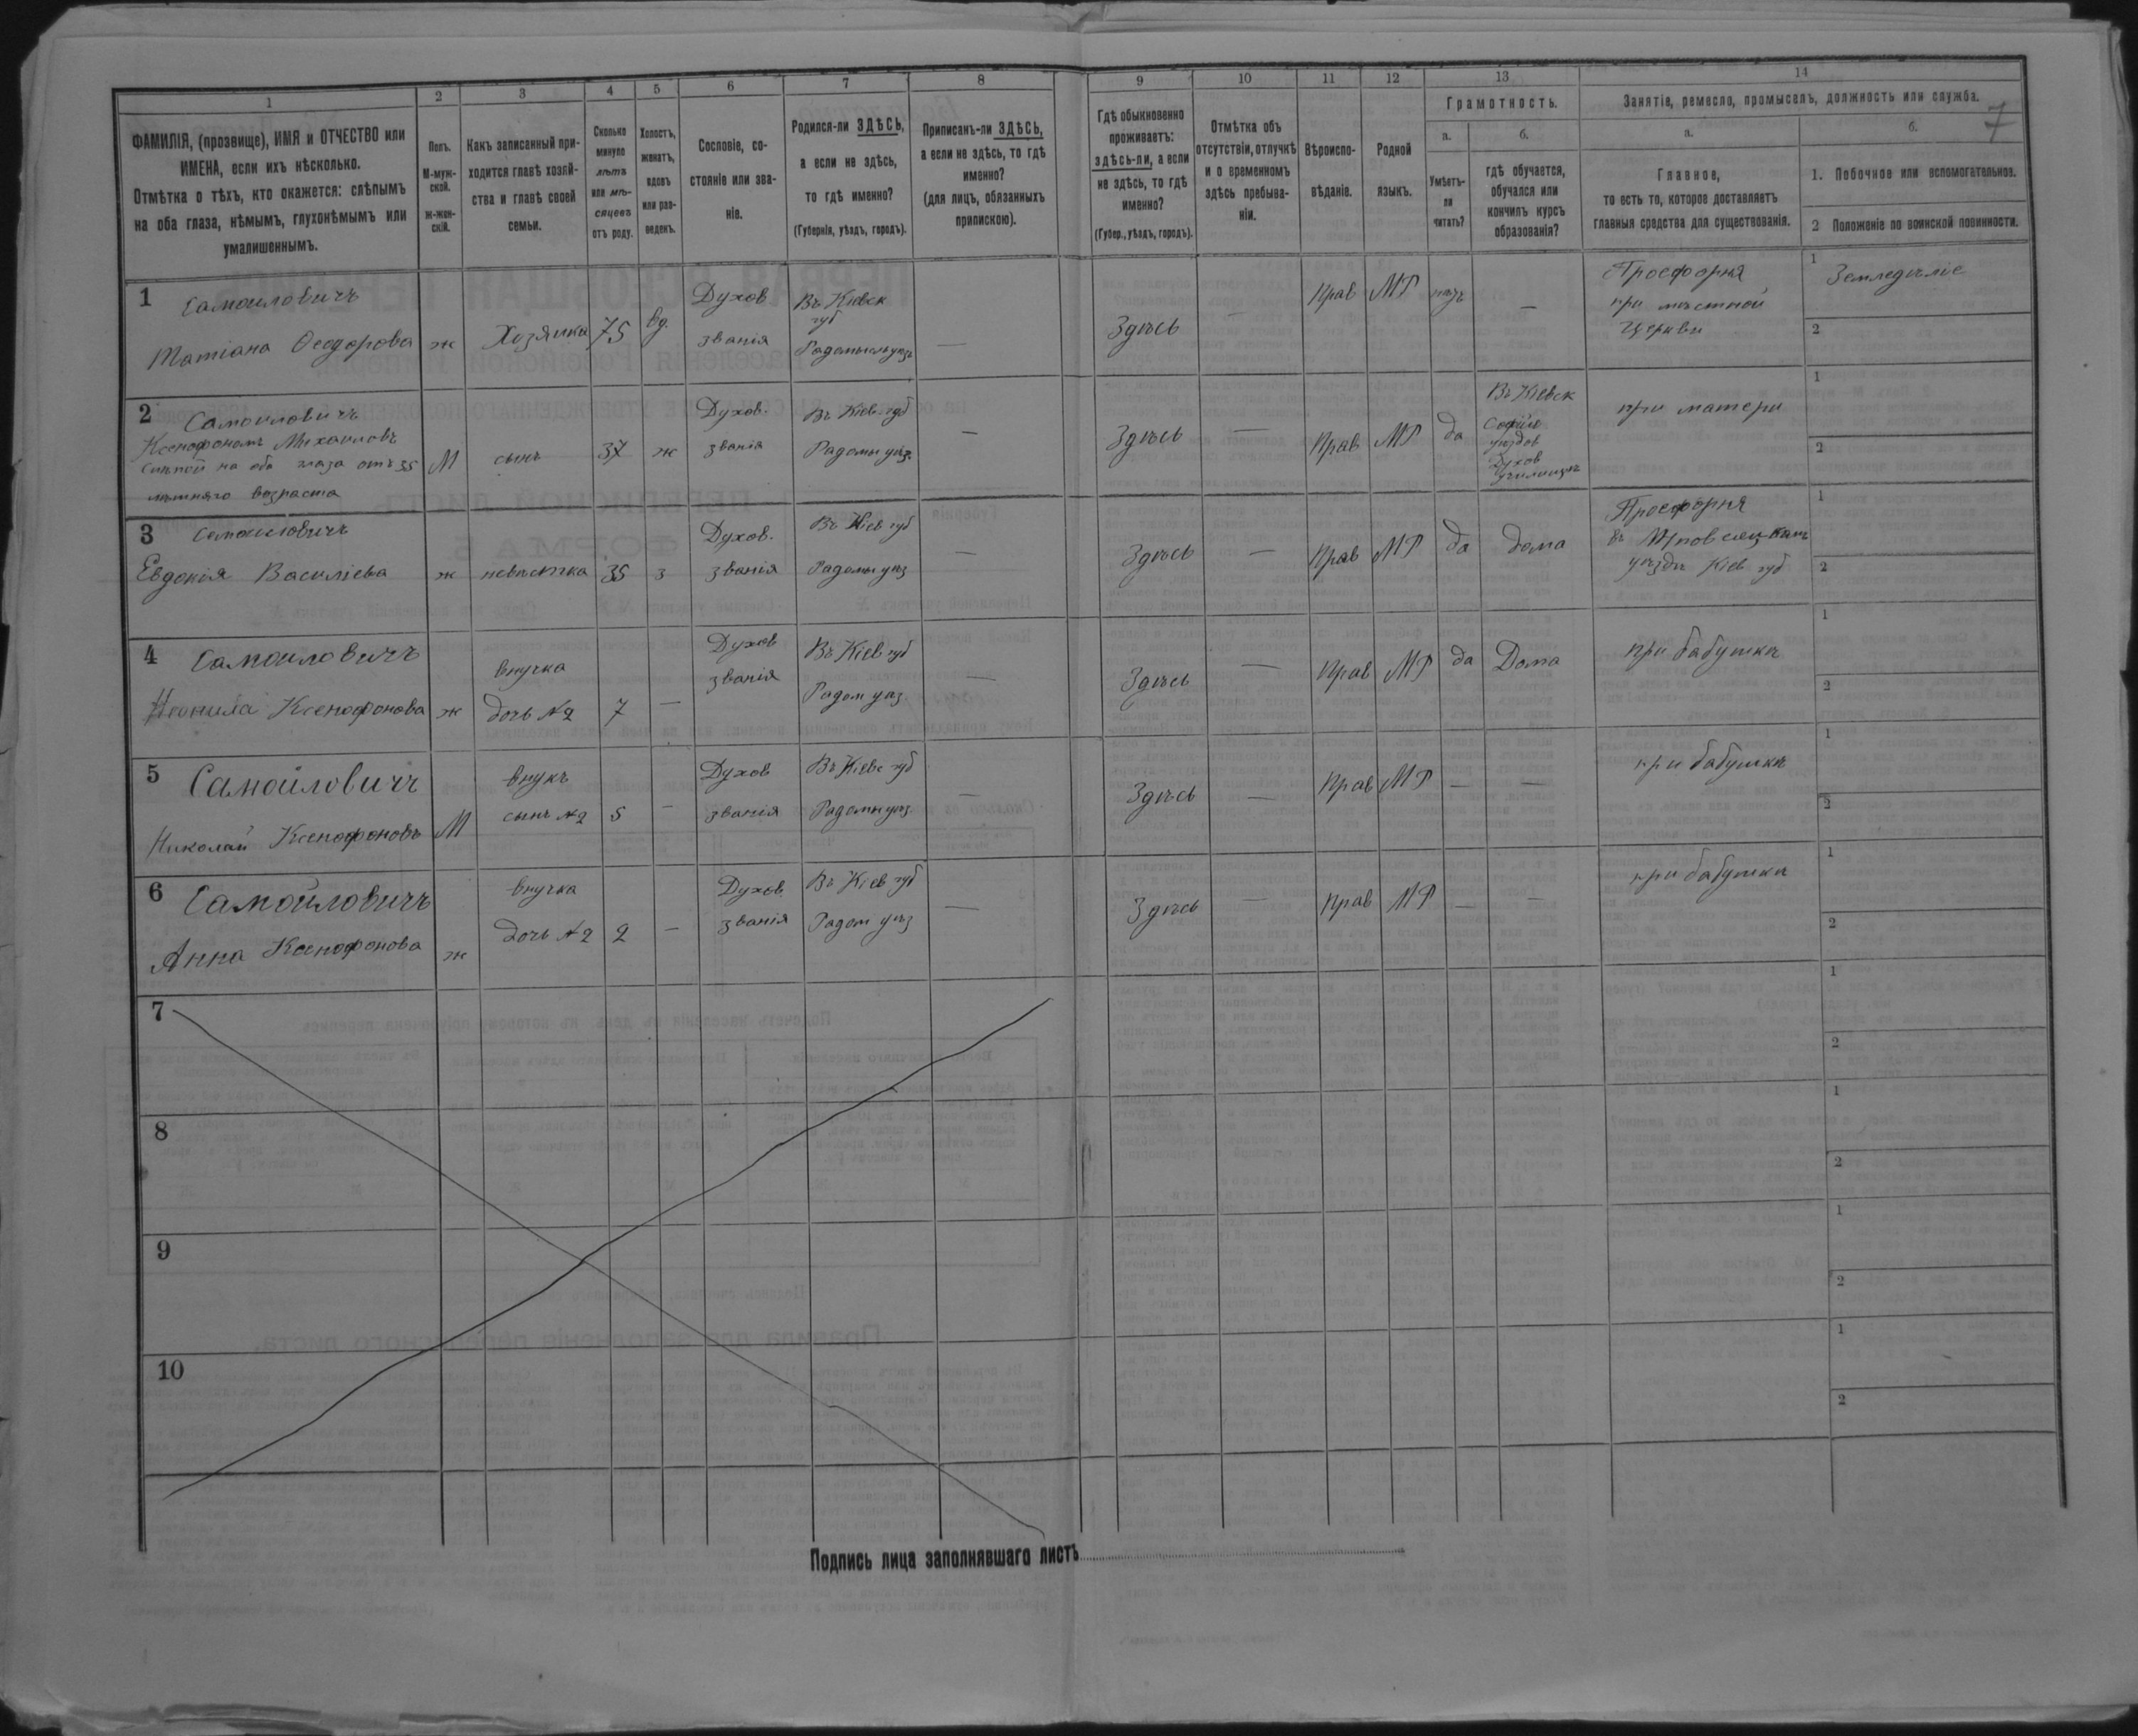 1 2 3 4 5 6 7 8 9 10 11 12 13 14
ФАМИЛІЯ, (прозвище), ИМЯ и ОТЧЕСТВО или
ИМЕНА, если ихъ нѣсколько.
Отмѣтка о тѣхъ, кто окажется: слѣпымъ
на оба глаза, нѣмымъ, глухонѣмымъ или
умалишеннымъ.
Полъ.
М-муж-
ской.
ж-жен-
скій.
Какъ записанный при-
ходится главѣ хозяй-
ства и главѣ своей
семьи.
Сколько
минуло
лѣтъ
или мѣ-
сяцевъ
отъ роду.
Холостъ,
женатъ,
вдовъ
или раз-
веденъ.
Сословіе, со-
стояніе или зва-
ніе.
Родился-ли ЗДѢСЬ,
а если не здѣсь,
то гдѣ именно?
(Губернія, уѣздъ, городъ).
Приписанъ-ли ЗДѢСЬ,
а если не здѣсь, то гдѣ
именно?
(для лицъ, обязанныхъ
припискою).
Гдѣ обыкновенно
проживаетъ:
здѣсь-ли, а если
не здѣсь, то гдѣ
именно?
(Губер., уѣздъ, городъ).
Отмѣтка объ
отсутствіи, отлучкѣ
и о временномъ
здѣсь пребыва-
ніи.
Вѣроиспо-
вѣданіе.
Родной
языкъ.
Грамотность.
а.
Умѣетъ-
ли
читать?
б.
гдѣ обучается,
обучался или
кончилъ курсъ
образованія?
Занятіе, ремесло, промыселъ, должность или служба.
7
а.
Главное,
то есть то, которое доставляетъ
главныя средства для существованія.
б.
1. Побочное или вспомогательное.
2 Положеніе по воинской повинности.
1 Самоиловичъ
Татіана Феодорова
ж
Хозяйка
75
вд.
Духов
званія
Въ Кіевск
губ
Радомысль уѣз
—
Здѣсь
—
Прав
МР
нѣтъ
—
Просфорня
при мѣстной
Церкви
1 Земледѣліе
2
2 Самоиловичъ
Ксенофонтъ Михаиловъ
Слѣпой на оба глаза отъ 35
лѣтняго возраста
М
сынъ
37
ж
Духов.
званія
Въ Кіев губ
Радомы уѣз.
—
Здѣсь
—
Прав
МР
да
Въ Кіевск
Софій
уѣздов
Духов
училищѣ
при матери
1
2
3 Самоиловичъ
Евдокія Василіева
ж
невѣстка
35
з
Духов.
званія
Въ Кіев губ
Радомы уѣз
—
Здѣсь
—
Прав
МР
да
дома
Просфорня
въ
уѣздѣ Кіев губ
1
2
4 Самоиловичъ
Ксенофонова
ж
внучка
дочь №2
7
—
Духов
званія
Въ Кіев губ
Радом уѣз.
—
Здѣсь
—
Прав
МР
да
Дома
при бабушкѣ
1
2
5 Самойловичъ
Николай Ксенофоновъ
М
внукъ
сынъ №2
5
—
Духов
званія
Въ Кіевс губ
Радомы уѣз.
—
Здѣсь
—
Прав
МР
—
—
при бабушкѣ
1
2
6 Самойловичъ
Анна Ксенофонова
ж
внучка
дочь №2
2
—
Духов
званія
Въ Кіев губ
Радом уѣз
—
Здѣсь
—
Прав
МР
—
—
при бабушкѣ
1
2
7
1
2
8
1
2
9
1
2
10
1
2
Подпись лица заполнявшаго листъ